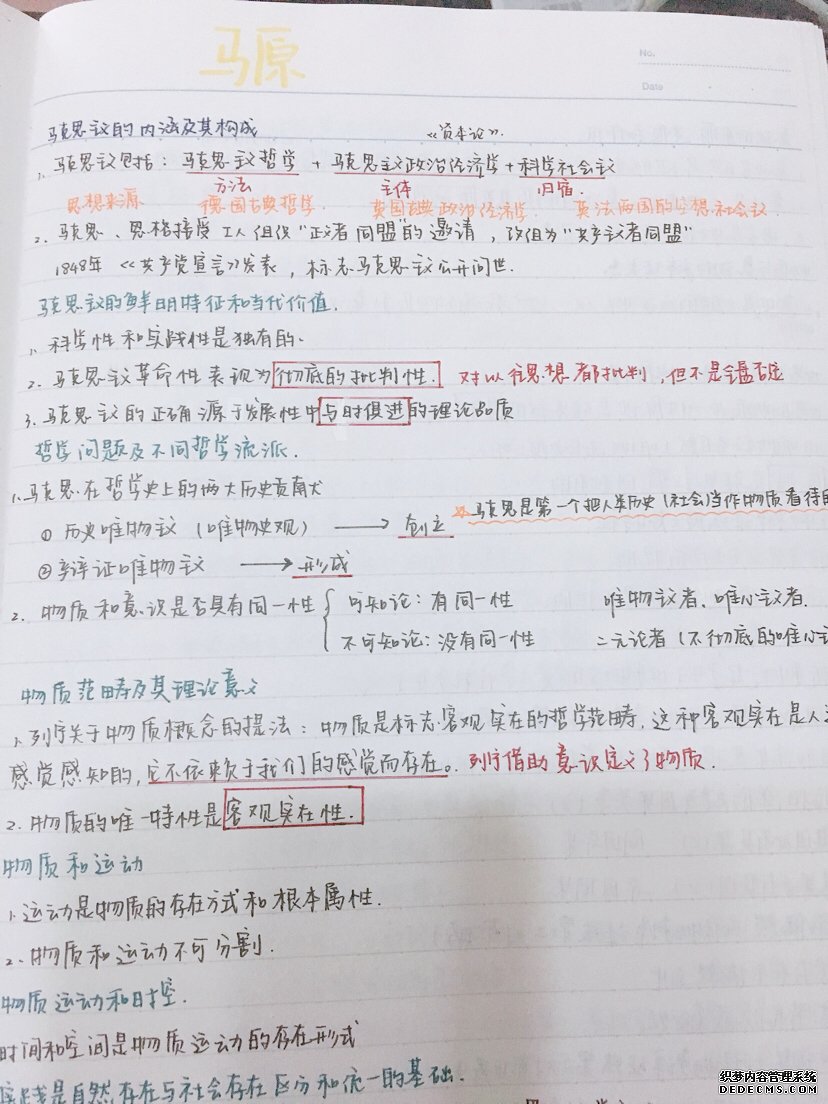 马原
No.
Date
马克思主义的内涵及其构成
《资本论》.
1、马克思主义包括：马克思主义哲学 + 马克思主义政治经济学 + 科学社会主义
方法 主体 归宿.
思想来源 德国古典哲学. 英国古典政治经济学. 英法两国的空想社会主义
2. 马克思、恩格斯接受工人组织“正义者同盟”的邀请，改组为“共产主义者同盟”
1848年《共产党宣言》发表，标志马克思主义公开问世.
马克思主义的鲜明特征和当代价值.
1、科学性和实践性是独有的.
2. 马克思主义革命性表现为彻底的批判性. 对以往思想都批判，但不是全盘否定
3. 马克思主义的正确源于发展性中与时俱进的理论品质
哲学问题及不同哲学流派.
1.马克思在哲学史上的两大历史贡献
① 历史唯物主义（唯物史观） → 创立 ☆马克思是第一个把人类历史（社会）当作物质看待的
②辩证唯物主义 → 形成
2. 物质和意识是否具有同一性 { 可知论：有同一性 唯物主义者、唯心主义者.
不可知论：没有同一性 二元论者（不彻底的唯心主
物质范畴及其理论意义
1、列宁关于物质概念的提法：物质是标志客观实在的哲学范畴，这种客观实在是人
感觉感知的，它不依赖于我们的感觉而存在。列宁借助意识定义了物质.
2. 物质的唯一特性是客观实在性.
物质和运动
1、运动是物质的存在方式和根本属性.
2、物质和运动不可分割.
物质运动和时空.
时间和空间是物质运动的存在形式
实践是自然存在与社会存在区分和统一的基础.
织梦内容管理系统
DEDECMS.COM